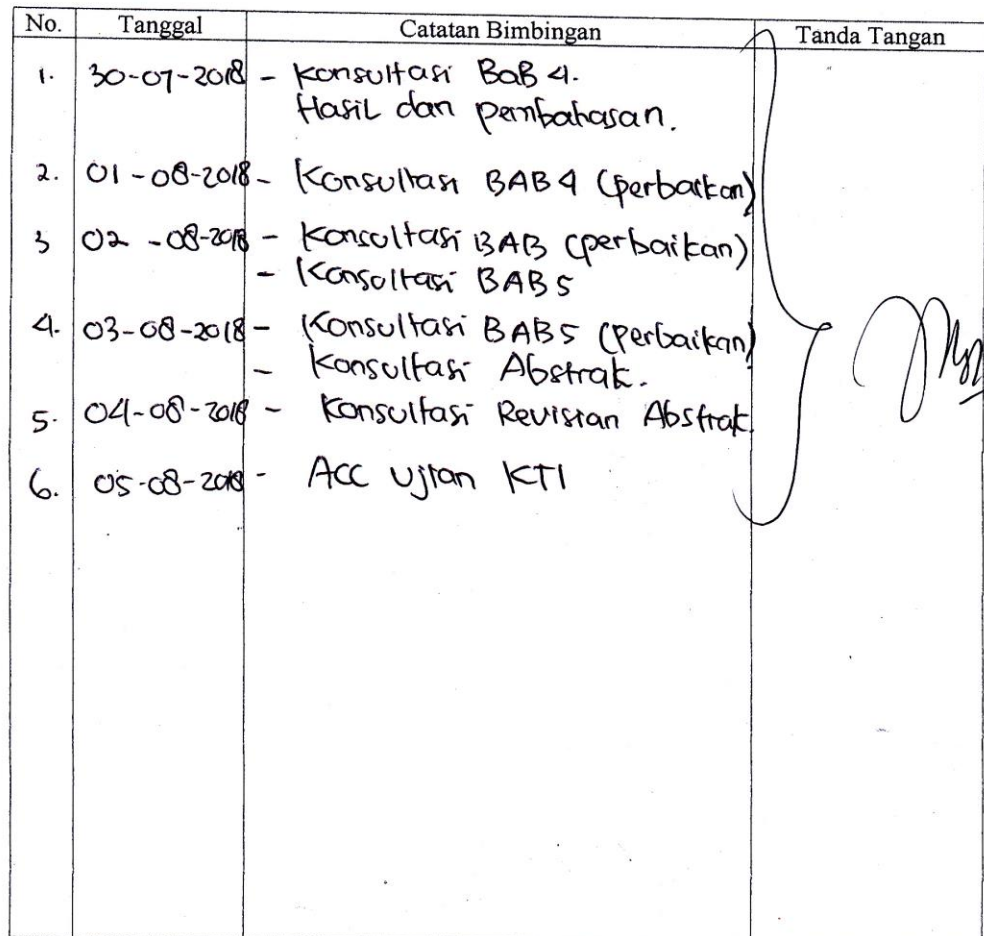 No. Tanggal Catatan Bimbingan Tanda Tangan
1. 30-07-2018 - Konsultasi BaB 4.
Hasil dan pembahasan.
2. 01-08-2018 - Konsultasi BAB 4 (perbaikan)
3 02-08-2018 - Konsultasi BAB (perbaikan)
- Konsultasi BAB 5
4. 03-08-2018 - Konsultasi BAB 5 (perbaikan)
- Konsultasi Abstrak.
5. 04-08-2018 - Konsultasi Revisian Abstrak.
6. 05-08-2018 - ACC Ujian KTI